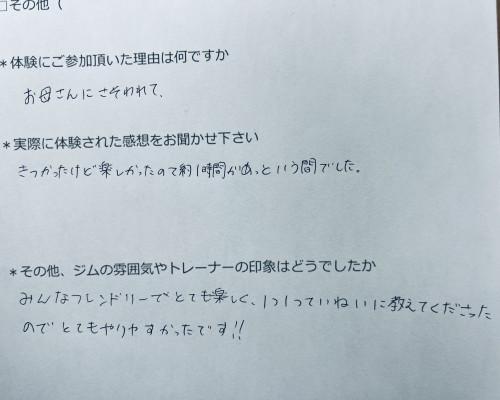 □その他（
＊体験にご参加頂いた理由は何ですか
お母さんにさそわれて、
＊実際に体験された感想をお聞かせ下さい
きつかったけど楽しかったので約1時間があっという間でした。
＊その他、ジムの雰囲気やトレーナーの印象はどうでしたか
みんなフレンドリーでとても楽しく、1つ1つていねいに教えてくださった
のでとてもやりやすかったです!!